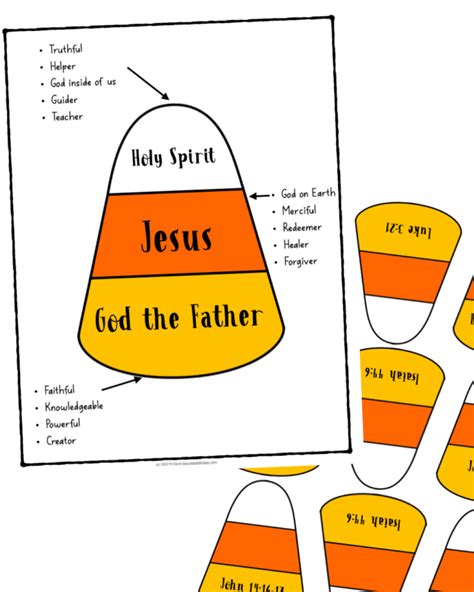 • Truthful
• Helper
• God inside of us
• Guider
• Teacher
Holy Spirit
• God on Earth
• Merciful
• Redeemer
• Healer
• Forgiver
Jesus
God the Father
• Faithful
• Knowledgeable
• Powerful
• Creator
Luke 3:21
Isaiah 44:6
Isaiah 44:6
John 14:16-17